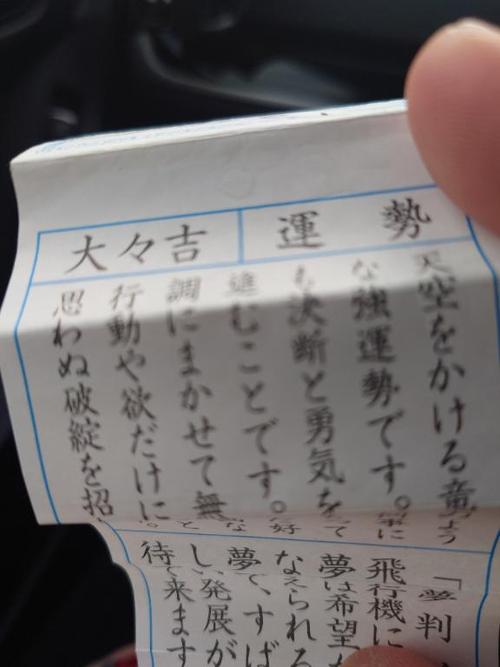 運勢
大々吉
天空をかける竜のよう
な強運勢です。常に
も決断と勇気を
進むことです。好
調にまかせて無
行動や欲だけに
思わぬ破綻を招
「夢判
飛行機に
夢は希望
なえられる
夢で、すば
し、発展が
来ます